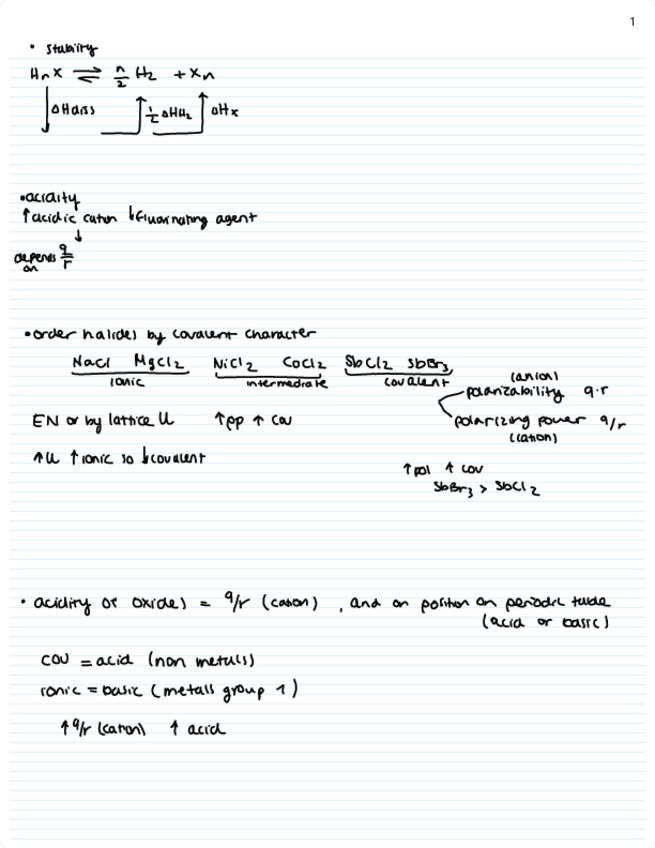 1
• stability
HnX ⇌ n/2 H2 + Xn
ΔHdiss ½ ΔHH2 ΔHx
• acidity
↑ acidic cation ↓ fluorinating agent
↓
depends on q/r
• order halides by covalent character
NaCl MgCl2 NiCl2 CoCl2 SbCl2 SbBr3
ionic intermediate covalent
(anion)
polarizability q·r
EN or by lattice U ↑pp ↑ cov
polarizing power q/r
(cation)
↑U ↑ionic so ↓covalent
↑pol ↑ cov
SbBr3 > SbCl2
• acidity of oxides = q/r (cation) , and on position on periodic table
(acid or basic)
cov = acid (non metals)
ionic = basic (metals group 1)
↑ q/r (cation) ↑ acid